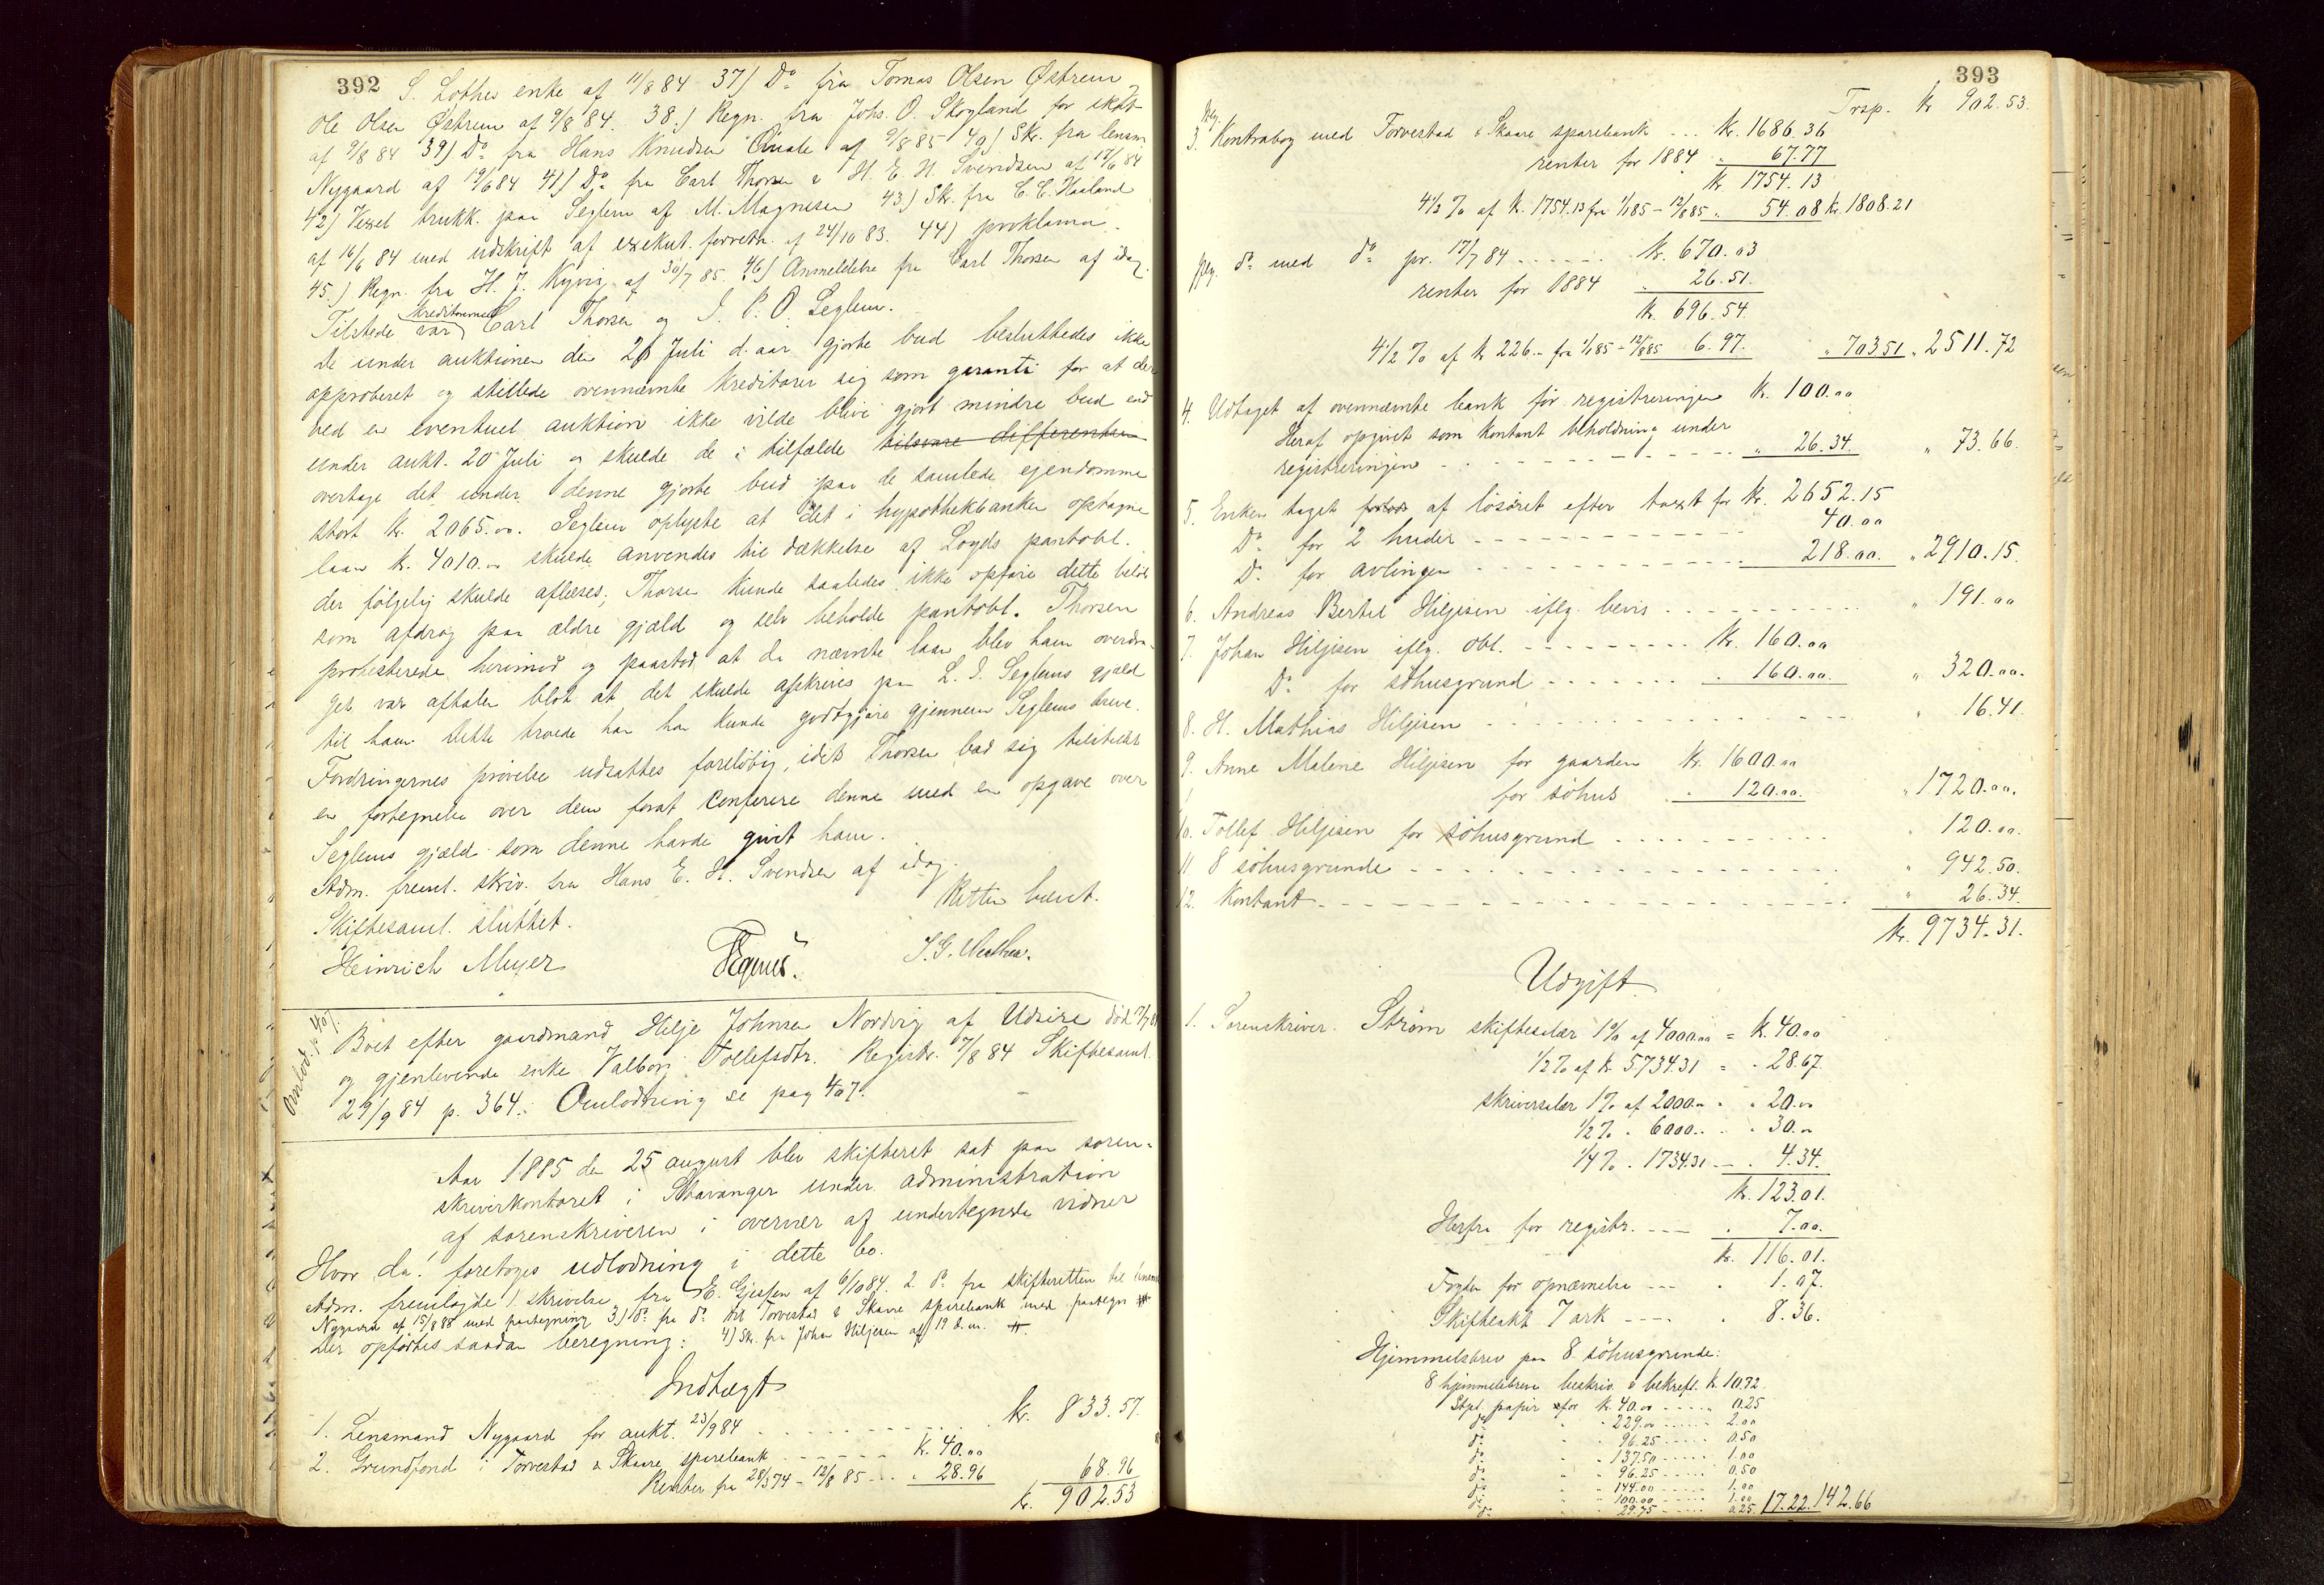 392
S. Lothes enke af 11/8 84 37) Do fra Tomas Olsen Østrem
Ole Olsen Østrem af 9/8 84. 38.) Regn. fra Johs. O. Skogland for skat
af 9/8 84 39) Do fra Hans Knudsen Qvale af 9/8 85 40) Sk. fra lensm
Nygaard af 19/6 84 41) Do fra Carl Thorsen & H. E. H. Svendsen af 17/6 84
42) Vexel trukk. paa Seglem af M. Magnesen 43.) Sk. fra C. C. Haaland
af 16/6 84 med udskrift af exekut. forretn. af 24/10 83. 44) proklama
45.) Regn. fra H. J. Kyvig af 30/7 85. 46) Anmeldelse fra Carl Thorsen af idag.
Tilstede var kreditorerne Carl Thorsen og J. P. O. Seglem.
De under auktionen den 20 Juli d. aar gjorte bud besluttedes ikke
approberet og stillede ovennævnte kreditorer sig som garanti for at der
ved en eventuel auktion ikke vilde blive gjort mindre bud end
under aukt. 20 Juli og skulde de i tilfælde tilsvare differenten
overtage det under denne gjorte bud paa de samlede ejendomme
stort kr. 2065.00. Seglem oplyste at det i hypothekbanken optagne
laan kr. 4010.00 skulde anvendes til dækkelse af Loyds pantobl.
der følgelig skulde aflæses; Thorsen kunde saaledes ikke opføre dette beløb
som afdrag paa ældre gjæld og selv beholde pantobl. Thorsen
protesterede herimod og paastod at da nævnte laan blev ham overdra-
get var aftalen blot at det skulde afskrives paa L. J. Seglems gjæld
til ham. Dette troede han han kunde godtgjøre gjennem Seglems breve.
Fordringernes prøvelse udsattes foreløbig, idet Thorsen bad sig tilstillet
en fortegnelse over dem forat conferere denne med en opgave over
Seglems gjæld som denne havde givet ham.
Adm. freml. skriv. fra Hans E. H. Svendsen af idag.
Skiftesaml. sluttet.
Retten hævet.
Heinrich Meyer
Boet efter gaardmand Hilje Johnsen Nordvig af Udsire død
og gjenlevende enke Valborg Tollefsdtr. Registr. 7/8 84 Skiftesaml.
29/9 84 p. 364. Omlodtning se pag 407.
Omlod. p. 407.
Aar 1885 den 25 august blev skifteret sat paa soren-
skriverkontoret i Stavanger under administration
af sorenskriveren i overvær af undertegnede vidner
Hvor da! foretoges udlodning i dette bo.
Adm. fremlagde 1. skrivelse fra E. Gjessen af 6/10 84. 2. do fra skifteretten til lensmd
Nygaard af 15/8 85 med paategning 3) do fra do til Torvestad & Skaare sparebank med paategn
4) Sk. fra Johan Hiljesen af 19 d. m.
Der opførtes saadan beregning:
Indtægt
1. Lensmand Nygaard for aukt. 23/9 84 kr. 833.57.
2. Grundfond i Torvestad & Skaare sparebank kr. 40.00
Renter fra 28/3 74 - 12/8 85 " 28.96 68.96
kr. 902.53
393
Trsp. kr 902.53.
3. Kontrabog med Torvestad & Skaare sparebank ... kr. 1686.36
renter for 1884 " 67.77
kr. 1754.13
4 1/2 % af kr. 1754.13 fra 1/1 85 - 12/8 85 " 54.08 kr. 1808.21
do med do pr. 17/7 84 ...... kr. 670.03
renter for 1884 " 26.51.
kr. 696.54.
4 1/2 % af kr 226.- fra 1/1 85 - 12/8 85 6.97. " 703.51 " 2511.72
4. Udtaget af ovennævnte bank før registreringen kr. 100.00
Heraf opgivet som kontant beholdning under
registreringen " 26.34. " 73.66.
5. Enken taget af løsøret efter taxt for kr. 2652.15
Do for 2 huder 40.00
Do for avlingen 218.00. " 2910.15.
6. Andreas Bertel Hiljesen iflg. bevis " 191.00
7. Johan Hiljesen iflg. obl. kr. 160.00
Do for søhusgrund " 160.00. " 320.00.
8. H. Mathias Hiljesen " 16.41.
9. Anne Malene Hiljesen for gaarden kr. 1600.00
for søhus " 120.00. " 1720.00.
10. Tollef Hiljesen for søhusgrund " 120.00.
11 8 søhusgrunde " 942.50.
12. Kontant " 26.34.
kr. 9734.31.
Udgift
1. Sorenskriver Strøm skiftesalær 1% af 4000.00 = kr. 40.00
1/2 % af kr. 5734.31 = " 28.67.
skriversalær 1% af 2000.00 " 20.00
1/2 % " 6000.. " 30.00
1/4 % . 1734.31 " 4.34.
kr. 123.01.
Herfra for registr. " 7.00.
kr. 116.01.
Fogden for opnævnelse " 1.07.
Skifteakt 7 ark " 8.36.
Hjemmelsbrev paa 8 søhusgrunde:
8 hjemmelsbreve beskriv. & bekræft. kr. 10.72.
Stpl. papir for kr. 40.00 " 0.25
do " 229.00 2.00
do " 96.25 0.50
do " 137.50 1.00
do " 96.25 0.50
do " 144.00 1.00
do " 100.00 1.00
do " 29.75 0.25. 17.22. 142.66